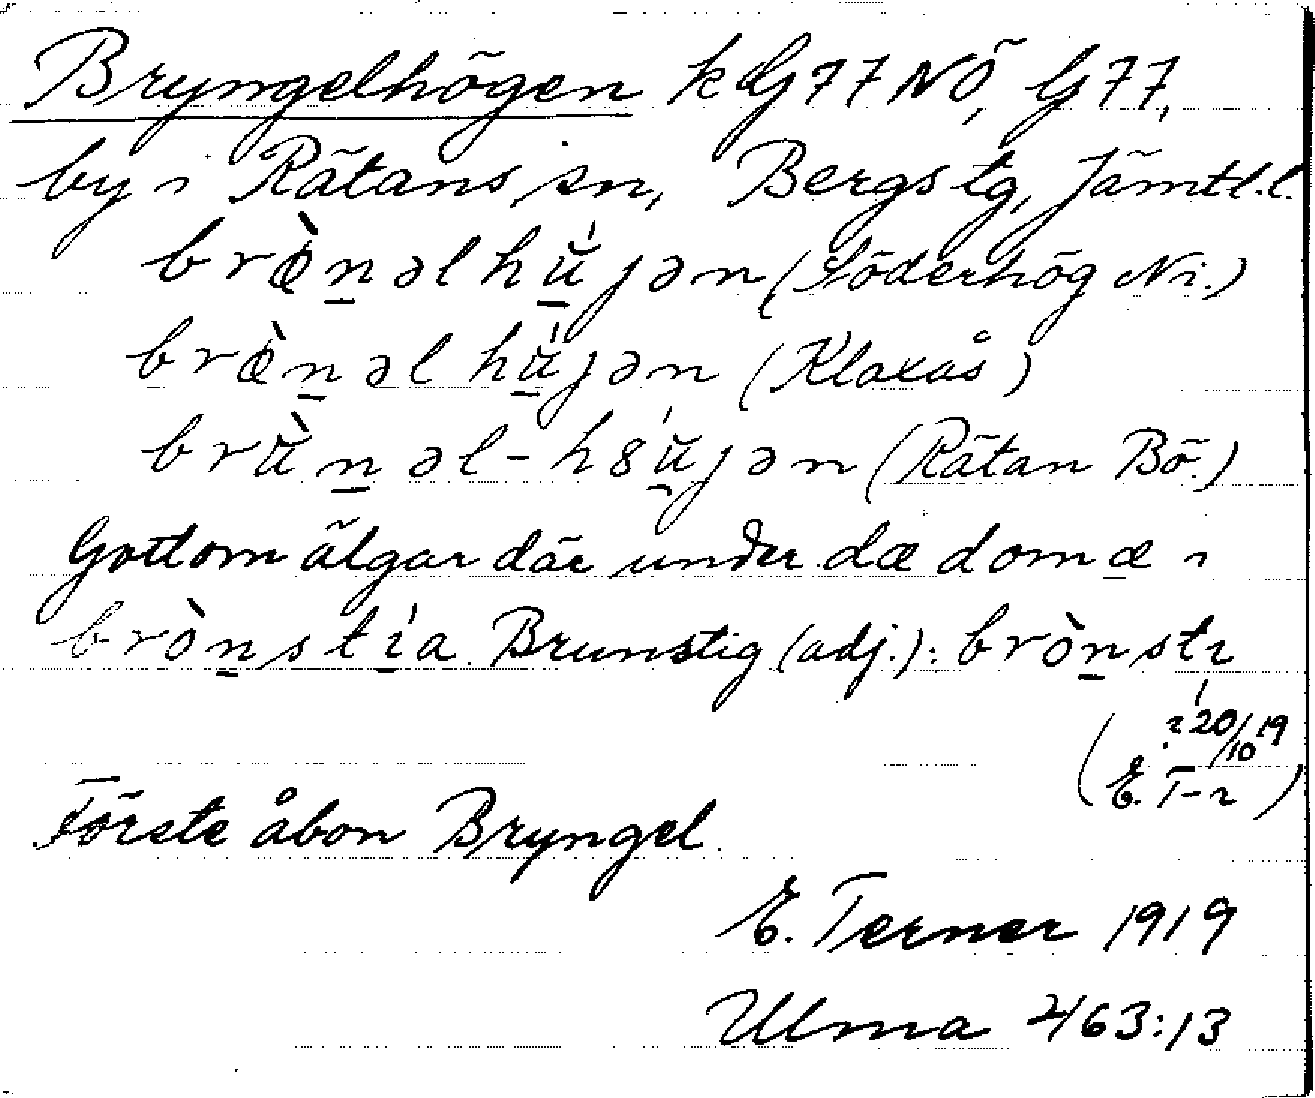 Bryngelhögen k G77NÖ, G77,
by i Rätans sn, Bergs tg, Jämtl. l.
brœ̀n̲əlhǘ̲jən (Söderhög Ni.)
brœ̀n̲əlhǘ̲jən (Klaxås)
brùn̲əl-h8ǘjən (Rätan Bö.)
Gottom älgar där under dæ dom æ i
bròn̲stí̲a. Brunstig (adj.): bròn̲stı
(20/10 19
E. T-r)
Förste åbon Bryngel.
E. Terner 1919
Ulma 463:13